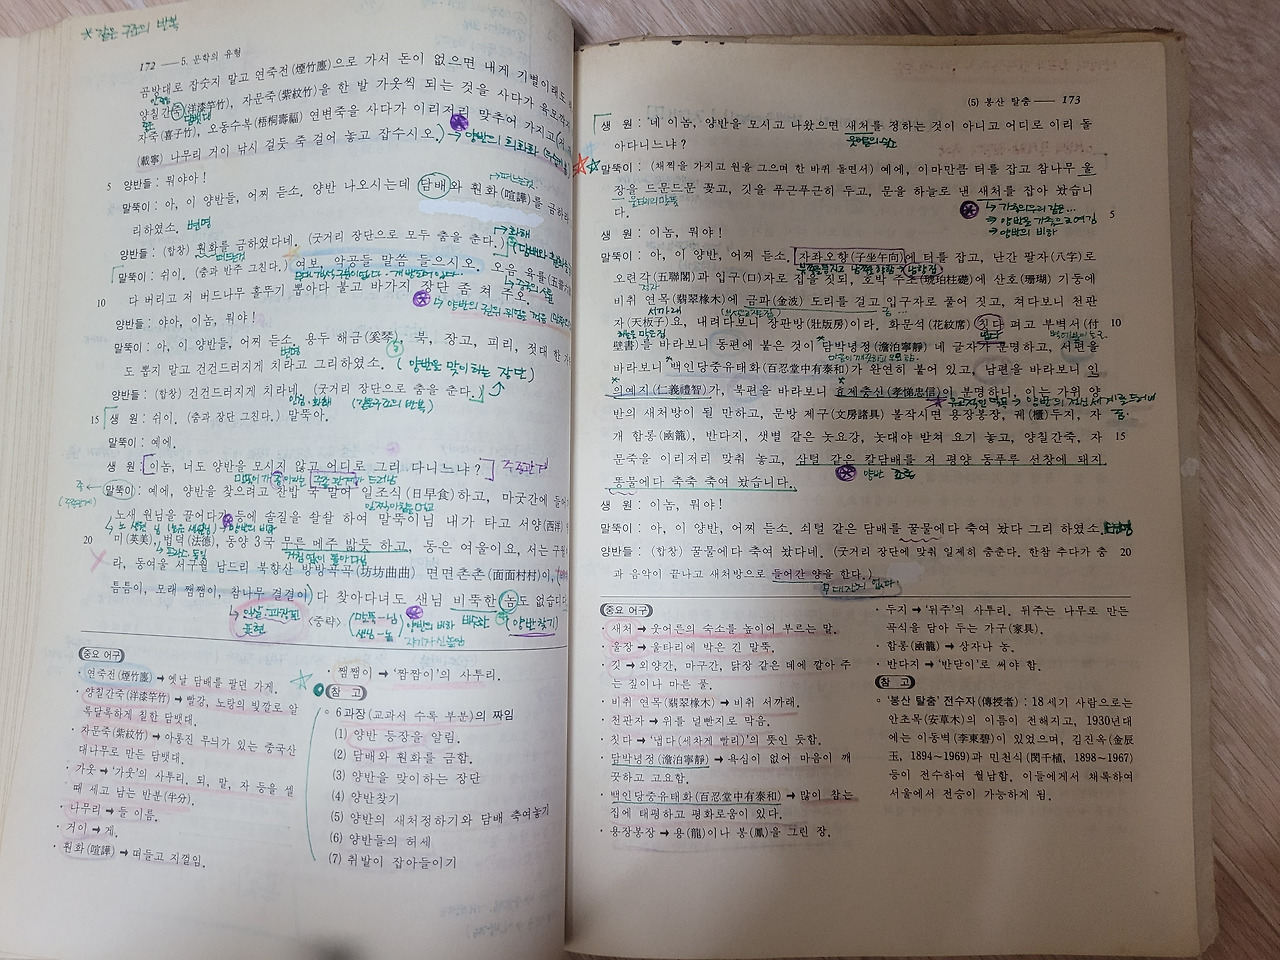 *같은 구조의 반복
172 ── 5. 문학의 유형
곰방대로 잡숫지 말고 연죽전(煙竹廛)으로 가서 돈이 없으면 내게 기별이래도
양칠간죽(洋漆竿竹), 자문죽(紫紋竹)을 한 발 가웃씩 되는 것을 사다가 육모깍지
자죽(喜子竹), 오동수복(梧桐壽福) 연변죽을 사다가 이리저리 맞추어 가지고
(載寧) 나무리 거이 낚시 걸듯 죽 걸어 놓고 잡수시오.
→ 양반의 희화화
5 양반들 : 뭐야아!
말뚝이 : 아, 이 양반들, 어찌 듣소. 양반 나오시는데 담배와 훤화(喧譁)를 금하라
리하였소. 변명
양반들 : (합창) 훤화를 금하였다네. (굿거리 장단으로 모두 춤을 춘다.)
→ 화해
떠드는것
말뚝이 : 쉬이. (춤과 반주 그친다.) 여보, 악공들 말씀 들으시오. 오음 육률(五音六律)
10 다 버리고 저 버드나무 홀뚜기 뽑아다 불고 바가지 장단 좀 쳐 주오.
양반들 : 야아, 이놈, 뭐야!
말뚝이 : 아, 이 양반들, 어찌 듣소. 용두 해금(奚琴), 북, 장고, 피리, 젓대 한
변명
도 뽑지 말고 건건드러지게 치라고 그리하였소. (양반을 맞이하는 장단)
양반들 : (합창) 건건드러지게 치라네. (굿거리 장단으로 춤을 춘다.)
15 생 원 : 쉬이. (춤과 장단 그친다.) 말뚝아.
말뚝이 : 예에.
생 원 : 이놈, 너도 양반을 모시지 않고 어디로 그리 다니느냐? 주종관계
말뚝이 : 예에, 양반을 찾으려고 찬밥 국 말어 일조식(日早食)하고, 마굿간에 들어
노새 원님을 끌어다가 등에 솔질을 솰솰 하여 말뚝이님 내가 타고 서양(西洋)
20 미(英美), 법덕(法德), 동양 3국 무른 메주 밟듯 하고, 동은 여울이요, 서는 구월
라, 동여울 서구월 남드리 북향산 방방곡곡(坊坊曲曲) 면면촌촌(面面村村)이,
틈틈이, 모래 쨈쨈이, 참나무 결결이 다 찾아다녀도 샌님 비뚝한 놈도 없습디
〈중략〉
(말뚝-님
샌님-놈)
양반의 비하
(양반찾기)
중요 어구
· 연죽전(煙竹廛) ➞ 옛날 담배를 팔던 가게.
· 양칠간죽(洋漆竿竹) ➞ 빨강, 노랑의 빛깔로 알
록달록하게 칠한 담뱃대.
· 자문죽(紫紋竹) ➞ 아롱진 무늬가 있는 중국산
대나무로 만든 담뱃대.
· 가웃 ➞ '가웃'의 사투리. 되, 말, 자 등을 셀
때 세고 남는 반분(半分).
· 나무리 ➞ 들 이름.
· 거이 ➞ 게.
· 훤화(喧譁) ➞ 떠들고 지껄임.
· 쨈쨈이 ➞ '짬짬이'의 사투리.
참 고
◦ 6과장(교과서 수록 부분)의 짜임
(1) 양반 등장을 알림.
(2) 담배와 훤화를 금함.
(3) 양반을 맞이하는 장단
(4) 양반찾기
(5) 양반의 새처정하기와 담배 축여놓기
(6) 양반들의 허세
(7) 취발이 잡아들이기
(5) 봉산 탈춤 ── 173
생 원 : 네 이놈, 양반을 모시고 나왔으면 새처를 정하는 것이 아니고 어디로 이리 돌
아다니느냐?
웃어른의 숙소
말뚝이 : (채찍을 가지고 원을 그으며 한 바퀴 돌면서) 예에, 이마만큼 터를 잡고 참나무 울
장을 드문드문 꽂고, 깃을 푸근푸근히 두고, 문을 하늘로 낸 새처를 잡아 놨습니
다. 5
울타리의 말뚝
→ 양반을 가축으로 여김
→ 양반의 비하
생 원 : 이놈, 뭐야!
말뚝이 : 아, 이 양반, 어찌 듣소. 자좌오향(子坐午向)에 터를 잡고, 난간 팔자(八字)로
오련각(五聯閣)과 입구(口)자로 집을 짓되, 호박 주초(琥珀柱礎)에 산호(珊瑚) 기둥에
비취 연목(翡翠椽木)에 금파(金波) 도리를 걸고 입구자로 풀어 짓고, 쳐다보니 천판
서까래
자(天板子)요, 내려다보니 장판방(壯版房)이라. 화문석(花紋席) 칫다 펴고 부벽서(付 10
壁書)를 바라보니 동편에 붙은 것이 담박녕정(澹泊寧靜) 네 글자가 분명하고, 서편을
바라보니 백인당중유태화(百忍堂中有泰和)가 완연히 붙어 있고, 남편을 바라보니 인
의예지(仁義禮智)가, 북편을 바라보니 효제충신(孝悌忠信)이 분명하니, 이는 가위 양
반의 새처방이 될 만하고, 문방 제구(文房諸具) 볼작시면 용장봉장, 궤(櫃)두지, 자
개 함롱(函籠), 반다지, 샛별 같은 놋요강, 놋대야 받쳐 요기 놓고, 양칠간죽, 자 15
문죽을 이리저리 맞춰 놓고, 삼털 같은 칼담배를 저 평양 동푸루 선창에 돼지
똥물에다 축축 축여 놨습니다.
양반 조롱
생 원 : 이놈, 뭐야!
말뚝이 : 아, 이 양반, 어찌 듣소. 쇠털 같은 담배를 꿀물에다 축여 놨다 그리 하였소.
양반들 : (합창) 꿀물에다 축여 놨다네. (굿거리 장단에 맞춰 일제히 춤춘다. 한참 추다가 춤 20
과 음악이 끝나고 새처방으로 들어간 양을 한다.)
무대장치 없다
중요 어구
· 새처 ➞ 웃어른의 숙소를 높이어 부르는 말.
· 울장 ➞ 울타리에 박은 긴 말뚝.
· 깃 ➞ 외양간, 마구간, 닭장 같은 데에 깔아 주
는 짚이나 마른 풀.
· 비취 연목(翡翠椽木) ➞ 비취 서까래.
· 천판자 ➞ 위를 널빤지로 막음.
· 칫다 ➞ '냅다(세차게 빨리)'의 뜻인 듯함.
· 담박녕정(澹泊寧靜) ➞ 욕심이 없어 마음이 깨
끗하고 고요함.
· 백인당중유태화(百忍堂中有泰和) ➞ 많이 참는
집에 태평하고 평화로움이 있다.
· 용장봉장 ➞ 용(龍)이나 봉(鳳)을 그린 장.
· 두지 ➞ '뒤주'의 사투리. 뒤주는 나무로 만든
곡식을 담아 두는 가구(家具).
· 함롱(函籠) ➞ 상자나 농.
· 반다지 ➞ '반닫이'로 써야 함.
참 고
◦ '봉산 탈춤' 전수자(傳授者) : 18세기 사람으로는
안초목(安草木)의 이름이 전해지고, 1930년대
에는 이동벽(李東碧)이 있었으며, 김진옥(金辰
玉, 1894~1969)과 민천식(閔千植, 1898~1967)
등이 전수하여 월남함. 이들에게서 채록하여
서울에서 전승이 가능하게 됨.